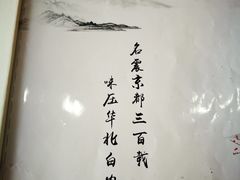 名震京都三百载
味压华北白肉